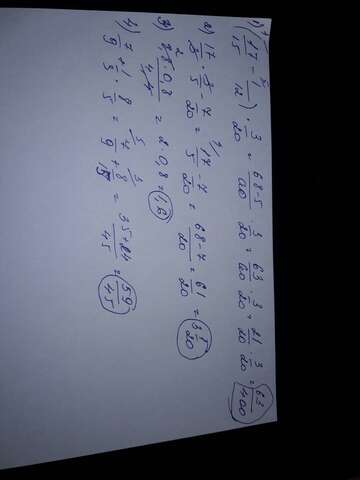 1) (17/15 - 1/12) · 3/20 = 68-5/60 · 3/20 = 63/60 · 3/20 = 21/20 · 3/20 = 63/400
2) 17/8 · 8/5 - 7/20 = 17/5 - 7/20 = 68-7/20 = 61/20 = 3 1/20
3) 8,8 · 0,8/4,4 = 2 · 0,8 = 1,6
4) 7/9 + 1/3 · 8/5 = 7/9 + 8/15 = 35+24/45 = 59/45